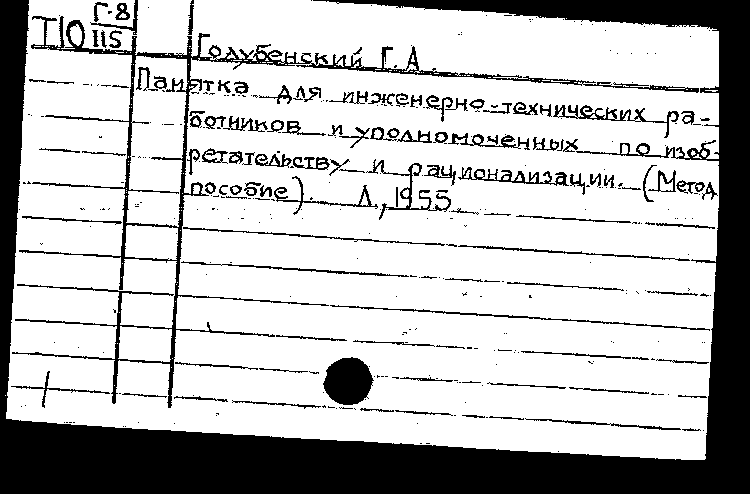 Г-8
П10 115
Голубенский Г. А.
Памятка для инженерно-технических ра-
ботников и уполномоченных по изоб-
ретательству и рационализации. (Метод
пособие). Л., 1955